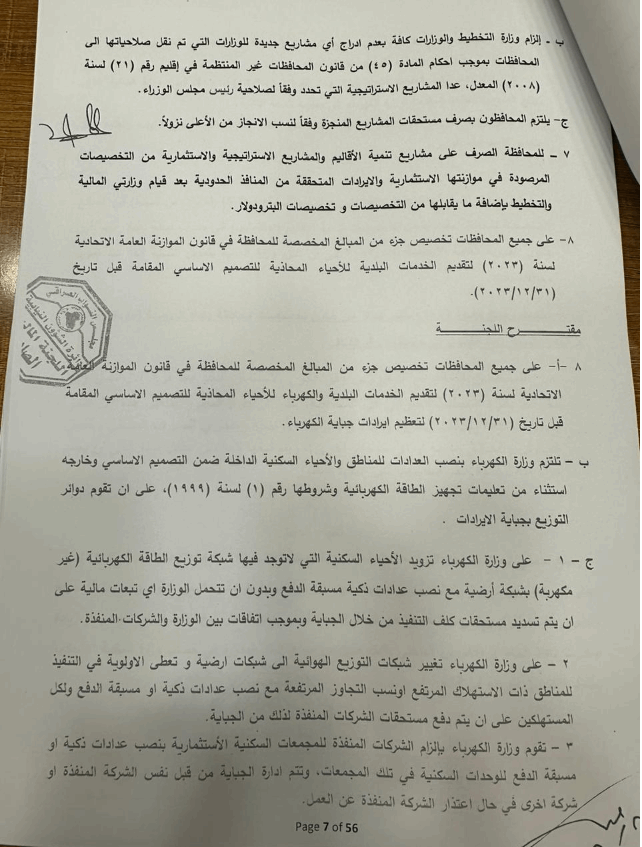 ب - إلزام وزارة التخطيط والوزارات كافة بعدم ادراج أي مشاريع جديدة للوزارات التي تم نقل صلاحياتها الى
المحافظات بموجب احكام المادة (٤٥) من قانون المحافظات غير المنتظمة في إقليم رقم (٢١) لسنة
(٢٠٠٨) المعدل، عدا المشاريع الاستراتيجية التي تحدد وفقاً لصلاحية رئيس مجلس الوزراء.
ج- يلتزم المحافظون بصرف مستحقات المشاريع المنجزة وفقاً لنسب الانجاز من الأعلى نزولاً.
٧ ـ للمحافظة الصرف على مشاريع تنمية الأقاليم والمشاريع الاستراتيجية والاستثمارية من التخصيصات
المرصودة في موازنتها الاستثمارية والايرادات المتحققة من المنافذ الحدودية بعد قيام وزارتي المالية
والتخطيط بإضافة ما يقابلها من التخصيصات و تخصيصات البترودولار.
٨- على جميع المحافظات تخصيص جزء من المبالغ المخصصة للمحافظة في قانون الموازنة العامة الاتحادية
لسنة (٢٠٢٣) لتقديم الخدمات البلدية للأحياء المحاذية للتصميم الاساسي المقامة قبل تاريخ
(٢٠٢٣/١٢/٣١).
مقتـــرح اللجنـــة
٨ -أ- على جميع المحافظات تخصيص جزء من المبالغ المخصصة للمحافظة في قانون الموازنة العامة
الاتحادية لسنة (٢٠٢٣) لتقديم الخدمات البلدية والكهرباء للأحياء المحاذية للتصميم الاساسي المقامة
قبل تاريخ (٢٠٢٣/١٢/٣١) لتعظيم ايرادات جباية الكهرباء.
ب – تلتزم وزارة الكهرباء بنصب العدادات للمناطق والأحياء السكنية الداخلة ضمن التصميم الاساسي وخارجه
استثناء من تعليمات تجهيز الطاقة الكهربائية وشروطها رقم (١) لسنة (١٩٩٩)، على ان تقوم دوائر
التوزيع بجباية الايرادات .
ج – ١ - على وزارة الكهرباء تزويد الأحياء السكنية التي لاتوجد فيها شبكة توزيع الطاقة الكهربائية (غير
مكهربة) بشبكة أرضية مع نصب عدادات ذكية مسبقة الدفع وبدون ان تتحمل الوزارة اي تبعات مالية على
ان يتم تسديد مستحقات كلف التنفيذ من خلال الجباية وبموجب اتفاقات بين الوزارة والشركات المنفذة.
٢ – على وزارة الكهرباء تغيير شبكات التوزيع الهوائية الى شبكات ارضية و تعطى الاولوية في التنفيذ
للمناطق ذات الاستهلاك المرتفع اونسب التجاوز المرتفعة مع نصب عدادات ذكية او مسبقة الدفع ولكل
المستهلكين على ان يتم دفع مستحقات الشركات المنفذة لذلك من الجباية.
٣ – تقوم وزارة الكهرباء بإلزام الشركات المنفذة للمجمعات السكنية الأستثمارية بنصب عدادات ذكية او
مسبقة الدفع للوحدات السكنية في تلك المجمعات، وتتم ادارة الجباية من قبل نفس الشركة المنفذة او
شركة اخرى في حال اعتذار الشركة المنفذة عن العمل.
مجلس النواب العراقي
دائرة الشؤون النيابية
اللجنة المالية
Page 7 of 56